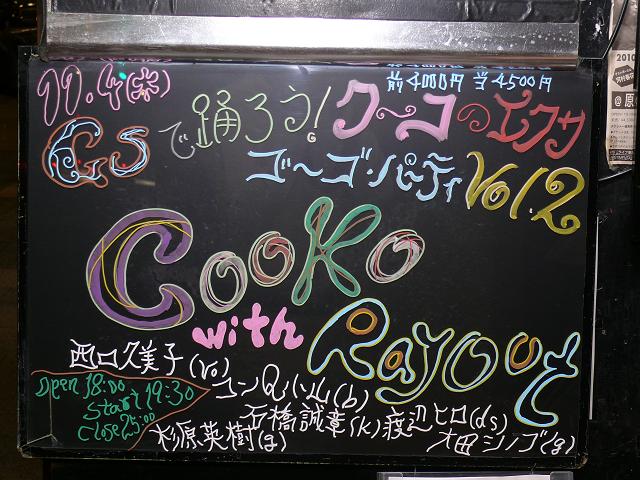 前4000円 当4500円
11.4(木)
GSで踊ろう!クーコのエクサ
ゴーゴーパーティ Vol.2
Cooko
with Rayout
西口久美子(vo)
Open 18:00
Start 19:30
Close 25:00
石橋誠章(k) 渡辺ヒロ(ds)
杉原英樹(g)
2010